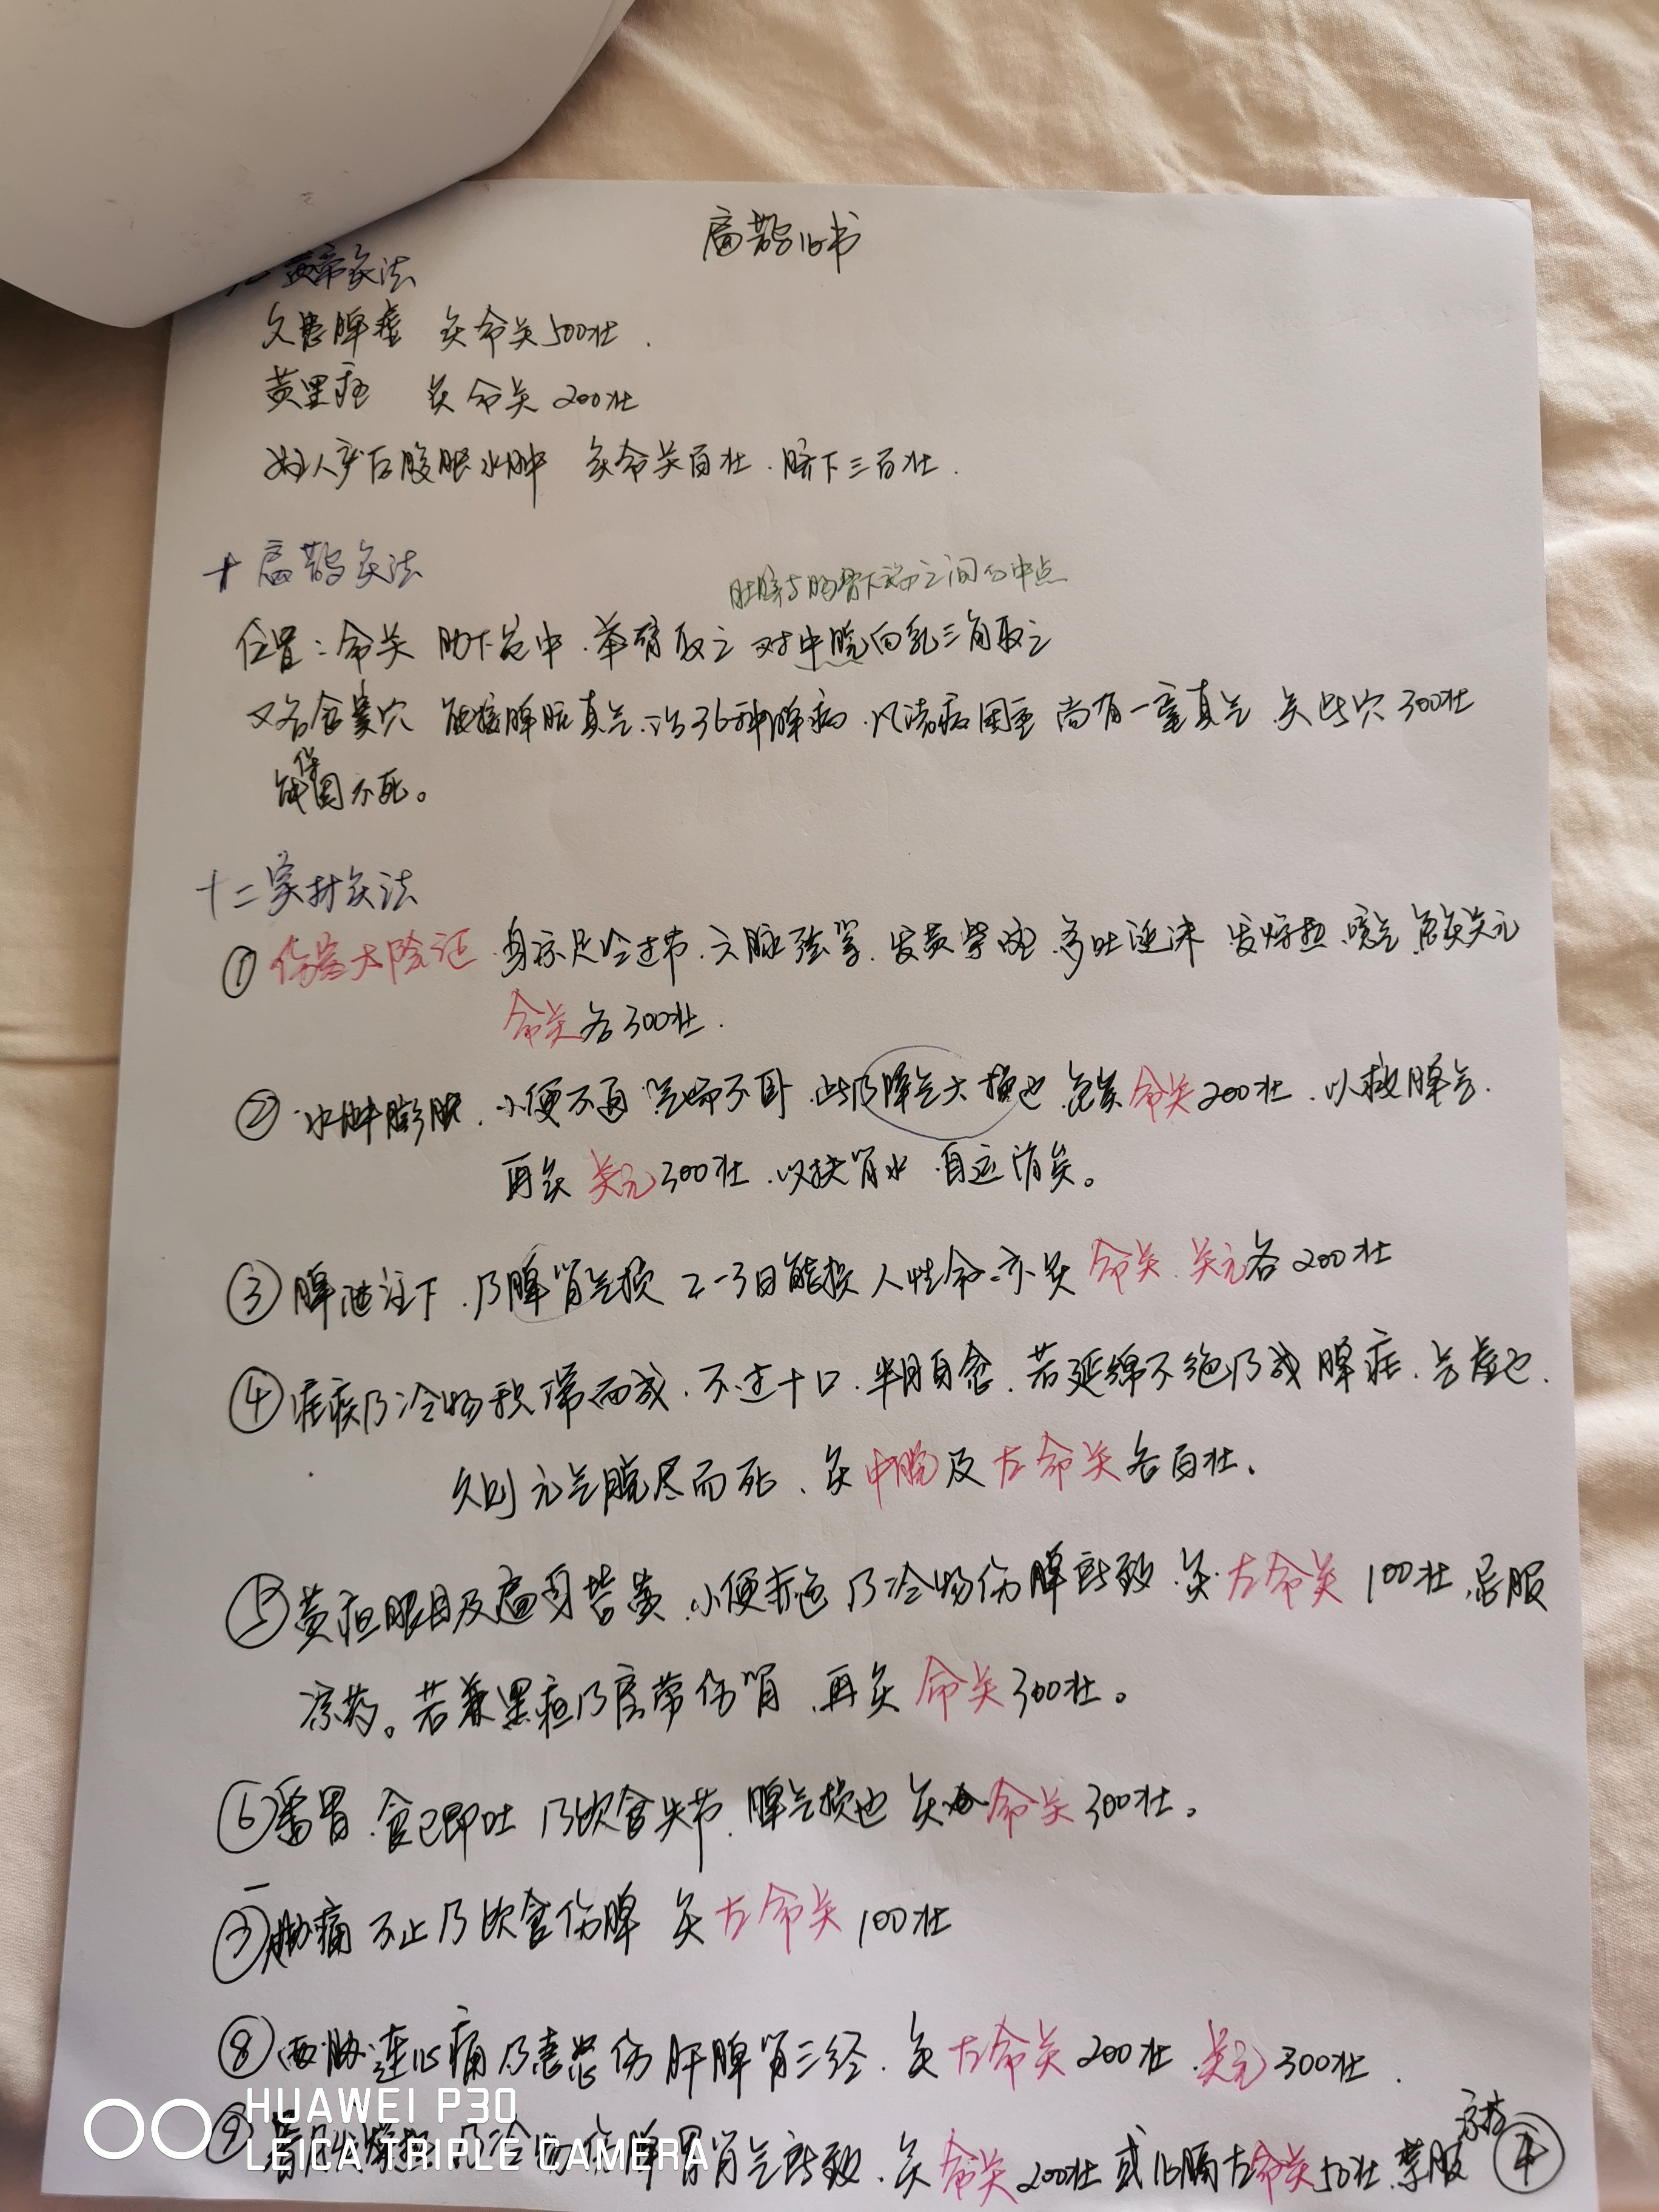 扁鹊心书
黄帝灸法
久患脾疟 灸命关500壮.
黄黑疸 灸命关200壮
妇人产后腹胀水肿 灸命关百壮.脐下三百壮.
扁鹊灸法
肚脐与胸骨下端之间的中点
位置:命关 肋下宛中.举臂取之 对中脘向乳三角取之
又名食窦穴 能接脾脏真气.治36种脾病.凡诸病困重 尚有一毫真气 灸此穴300壮
能保固不死。
十二 窦材灸法
① 伤寒大险证 身凉足冷过节.六脉弦紧.发黄紫斑.多吐涎沫 发燥热.噫气 急灸关元
命关各300壮.
② 水肿膨胀.小便不通 气喘不卧.此乃脾气大损也 急灸命关200壮.以救脾气.
再灸 关元300壮.以扶肾水 自运消矣。
③ 脾泄注下.乃脾肾气损 2-3日能损人性命.亦灸 命关.关元各200壮
④ 疟疾乃冷物积滞而成.不过十日.半月自愈.若延绵不绝乃成脾疟.气虚也.
久则元气脱尽而死.灸中脘及左命关各百壮.
⑤ 黄疸眼目及遍身皆黄.小便赤色 乃冷物伤脾所致.灸左命关 100壮.忌服
凉药。若兼黑疸乃房劳伤肾.再灸 命关300壮。
⑥ 番胃.食已即吐 乃饮食失节.脾气损也 灸命关300壮。
⑦ 胁痛不止乃饮食伤脾 灸左命关100壮
⑧ 两胁连心痛乃恚怒伤肝脾肾三经.灸左命关200壮.关元300壮.
⑨ 乃冷物伤脾胃肾气所致.灸命关200壮或心膈左命关50壮.禁服
凉药
④
HUAWEI P30
LEICA TRIPLE CAMERA